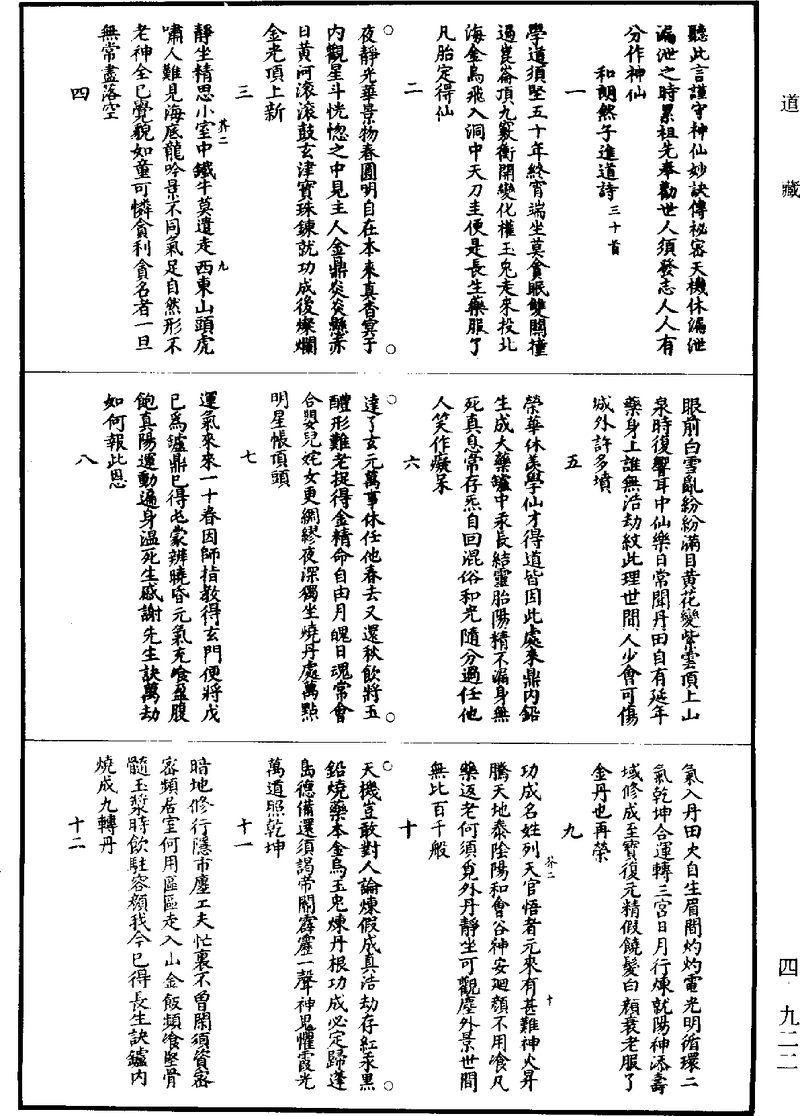 道藏
聽此言謹守神仙妙訣傳祕密天機休漏泄
漏泄之時累祖先奉勸世人須發志人人有
分作神仙
和朗然子進道詩三十首
一
學道須堅五十年終宵端坐莫貪眠雙關撞
過崑崙頂九竅衝開變化權玉兔走來投北
海金烏飛入洞中天刀圭便是長生藥服了
凡胎定得仙
二
夜靜光華景物春圓明自在本來真杳冥于
内觀星斗恍惚之中見主人金鼎炎炎懸赤
日黄河滚滚鼓玄津寶珠鍊就功成後燦爛
金光頂上新
三
靜坐精思小室中鐵牛莫遣走西東山頭虎
嘯人難見海底龍吟景不同氣足自然形不
老神全已覺貌如童可憐貪利貪名者一旦
無常盡落空
四
芥二
九
眼前白雪亂紛紛滿目黄花變紫雲頂上山
泉時復響耳中仙樂日常聞丹田自有延年
藥身上誰無浩劫紋此理世間人少會可傷
城外許多墳
五
榮華休羡學仙才得道皆因此處來鼎内鉛
生成大藥鑪中汞長結靈胎陽精不漏身無
死真息常存炁自回混俗和光隨分過任他
人笑作癡呆
六
達了玄元萬事休任他春去又還秋飲將五
醴形難老捉得金精命自由月魄日魂常會
合嬰兒姹女更綢繆夜深獨坐燒丹處萬點
明星帳頂頭
七
運氣來來一十春因師指教得玄門便將戊
已爲鑪鼎已得屯蒙辨曉昏元氣充喰盈腹
飽真陽運動遍身温死生感謝先生訣萬劫
如何報此恩
八
氣入丹田火自生眉間灼灼電光明循環二
氣乾坤合運轉三宫日月行煉就陽神添壽
域修成至寶復元精假饒髮白顔衰老服了
金丹也再榮
九
功成名姓列天官悟者元來有甚難神火昇
騰天地泰陰陽和會谷神安廻顔不用喰凡
藥返老何須覓外丹靜坐可觀塵外景世間
無比百千般
十
芥二
十
天機豈敢對人論煉假成真浩劫存紅汞黑
鉛燒藥本金烏玉兔煉丹根功成必定歸蓬
島德備還須謁帝閽霹靂一聲神鬼懼霞光
萬道照乾坤
十一
暗地修行隱市廛工夫忙裏不曾閑須資密
密頻居室何用區區走入山金飯頻飡堅骨
髓玉漿時飲駐容顔我今已得長生訣鑪内
燒成九轉丹
十二
四·九二二